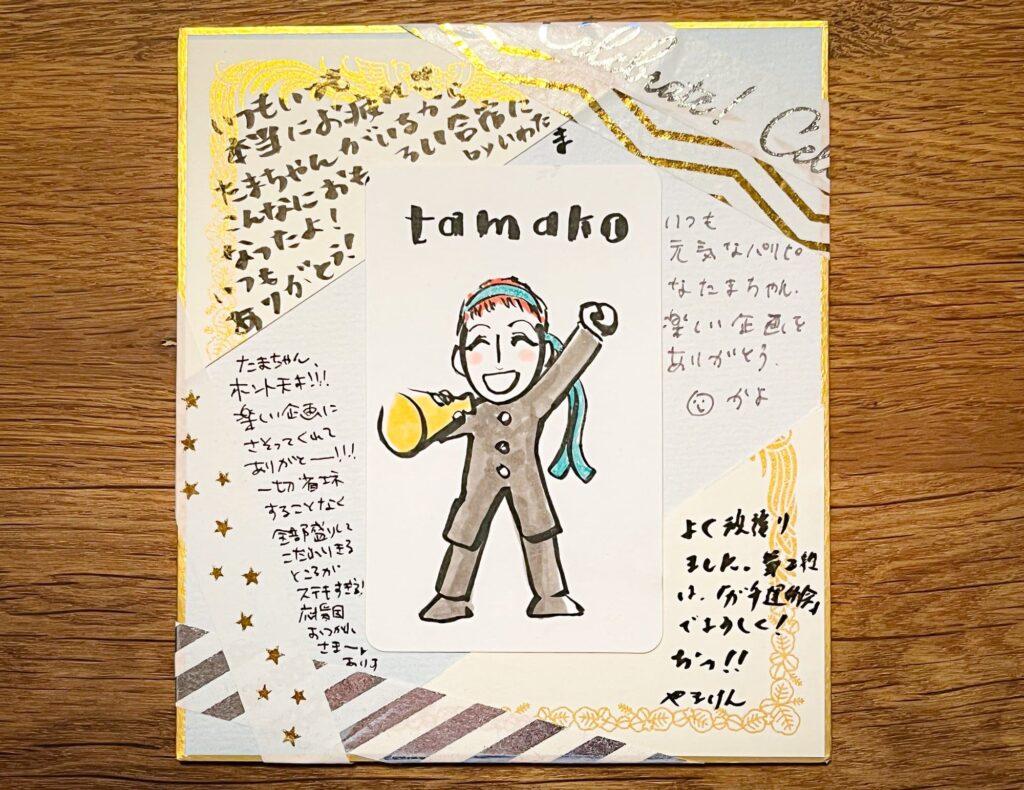 Celebrate! Cel
いつもい
本当にお疲れ
たまちゃんがいるから
こんなにおも
ろしい合宿に
なったよ!
いつも
ありがとう!
byいわたま
tamako
いつも
元気なパリピ
なたまちゃん、
楽しい企画を
ありがとう。
かよ
たまちゃん、
ホント天才!!!
楽しい企画に
さそってくれて
ありがとー!!!
一切省エネ
することなく
全部盛りして
こだわりきる
ところが
ステキすぎる!
応援団
おつかれ
さまー。
ありす
よく頑張り
ました。第2段
は、「ガチ運動会」
でよろしく!
おつ!!
やまけん